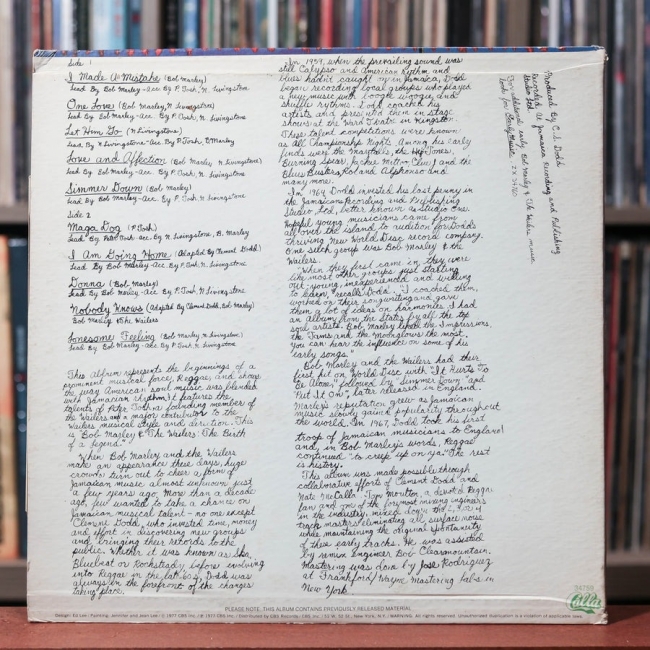 Side 1
I Made A Mistake (Bob Marley)
Lead By Bob Marley-Acc. By P. Tosh, N. Livingstone
One Love (Bob Marley, N. Livingstone)
Lead By Bob Marley-Acc By P. Tosh, N. Livingstone
Let Him Go (N. Livingstone)
Lead By N. Livingstone-Acc. By P. Tosh, B. Marley
Love and Affection (Bob Marley, N. Livingstone)
Lead By Bob Marley-Acc. By P. Tosh, N. Livingstone
Simmer Down (Bob Marley)
Lead By Bob Marley-Acc. By P. Tosh, N. Livingstone
Side 2
Maga Dog (P. Tosh)
Lead By Peter Tosh-Acc. By N. Livingstone, B. Marley
I Am Going Home (Adapted By Clement Dodd)
Lead By Bob Marley-Acc By P. Tosh, N. Livingstone
Donna (Bob Marley)
Lead By Bob Marley-Acc By P. Tosh, N. Livingstone
Nobody Knows (Adapted By Clement Dodd, Bob Marley)
Bob Marley & The Wailers
Lonesome Feeling (Bob Marley, N. Livingstone)
Lead By Bob Marley-Acc By P. Tosh, N. Livingstone
This album represents the beginnings of a
prominent musical force, Reggae, and shows
the way American soul music was blended
with Jamaican rhythm. It features the
talents of Peter Tosh, a founding member of
the Wailers and a major contributor to the
Wailers musical style and direction. This
is Bob Marley & The Wailers: The Birth
of a legend."
When Bob Marley and the Wailers
make an appearance these days, huge
crowds turn out to cheer a form of
Jamaican music almost unknown just
a few years ago. More than a decade
ago, few wanted to take a chance on
Jamaican musical talent - no one except
Clement Dodd, who invested time, money
and effort in discovering new groups
and bringing their records to the
public. Whether it was known as Ska,
Bluebeat or Rocksteady, before evolving
into Reggae in the late 60s, Dodd was
always in the forefront of the changes
taking place.
In 1959, when the prevailing sound was
still Calypso and American Rhythm and
blues hadn't caught on in Jamaica, Dodd
began recording local groups who played
a new music with boogie woogie and
shuffle rhythms. Dodd coached his
artists and presented them in stage
shows at the Ward Theatre in Kingston.
These talent competitions were known
as All Championship Nights. Among his early
finds were the Maytalls, the Hep Jones,
Burning Spear, Jackie Mittoo, Clue J and the
Blues Busters, Roland Alphonso and
many more.
In 1964, Dodd invested his last penny in
the Jamaican Recording and Publishing
Studio Ltd., better known as Studio One.
Hopeful young musicians came from
all over the island to audition for Dodd's
thriving New World Disc record company.
One such group was Bob Marley & the
Wailers.
"When they first came in, they were
like most other groups just starting
out - young, inexperienced and willing
to learn," recalls Dodd. "I coached them,
worked on their songwriting and gave
them a lot of ideas on harmonies. I had
an album from the States by all the top
soul artists. Bob Marley liked the Impressions,
the Tams and the Moonglows the most.
You can hear the influence on some of his
early songs."
Bob Marley and the Wailers had their
first hit on World Disc with "It Hurts To
Be Alone," followed by "Simmer Down" and
"Put It On", later released in England.
Marley's reputation grew as Jamaican
music slowly gained popularity throughout
the world. In 1967, Dodd took his first
troop of Jamaican musicians to England
and, in Bob Marley's words, Reggae
continued "to creep up on ya." The rest
is history.
This album was made possible through
collaborative efforts of Clement Dodd and
Nate McCalla. Tom Moulton, a devoted Reggae
fan and one of the foremost mixing engineers
in the industry, mixed down the 2, 3, & 4
track masters eliminating all surface noise
while maintaining the original spontaneity
of these early tracks. He was assisted
by remix Engineer Bob Clearmountain.
Mastering was done by José Rodriguez
at Frankford/Wayne Mastering Labs in
New York.
Produced By C.S. Dodd
Recorded At Jamaica Recording and Publishing
Studio Ltd.
For additional early Bob Marley & The Wailers music
look for: Early Music
24759
Calla
PLEASE NOTE: THIS ALBUM CONTAINS PREVIOUSLY RELEASED MATERIAL
Design: Ed Lee / Painting: Jennifer and Jean Lee / © 1977 CBS Inc. / ℗ 1977 CBS Inc. / Distributed by CBS Records, CBS, Inc. / 51 W. 52 St., New York, N.Y. / WARNING: All rights reserved. Unauthorized duplication is a violation of applicable laws.